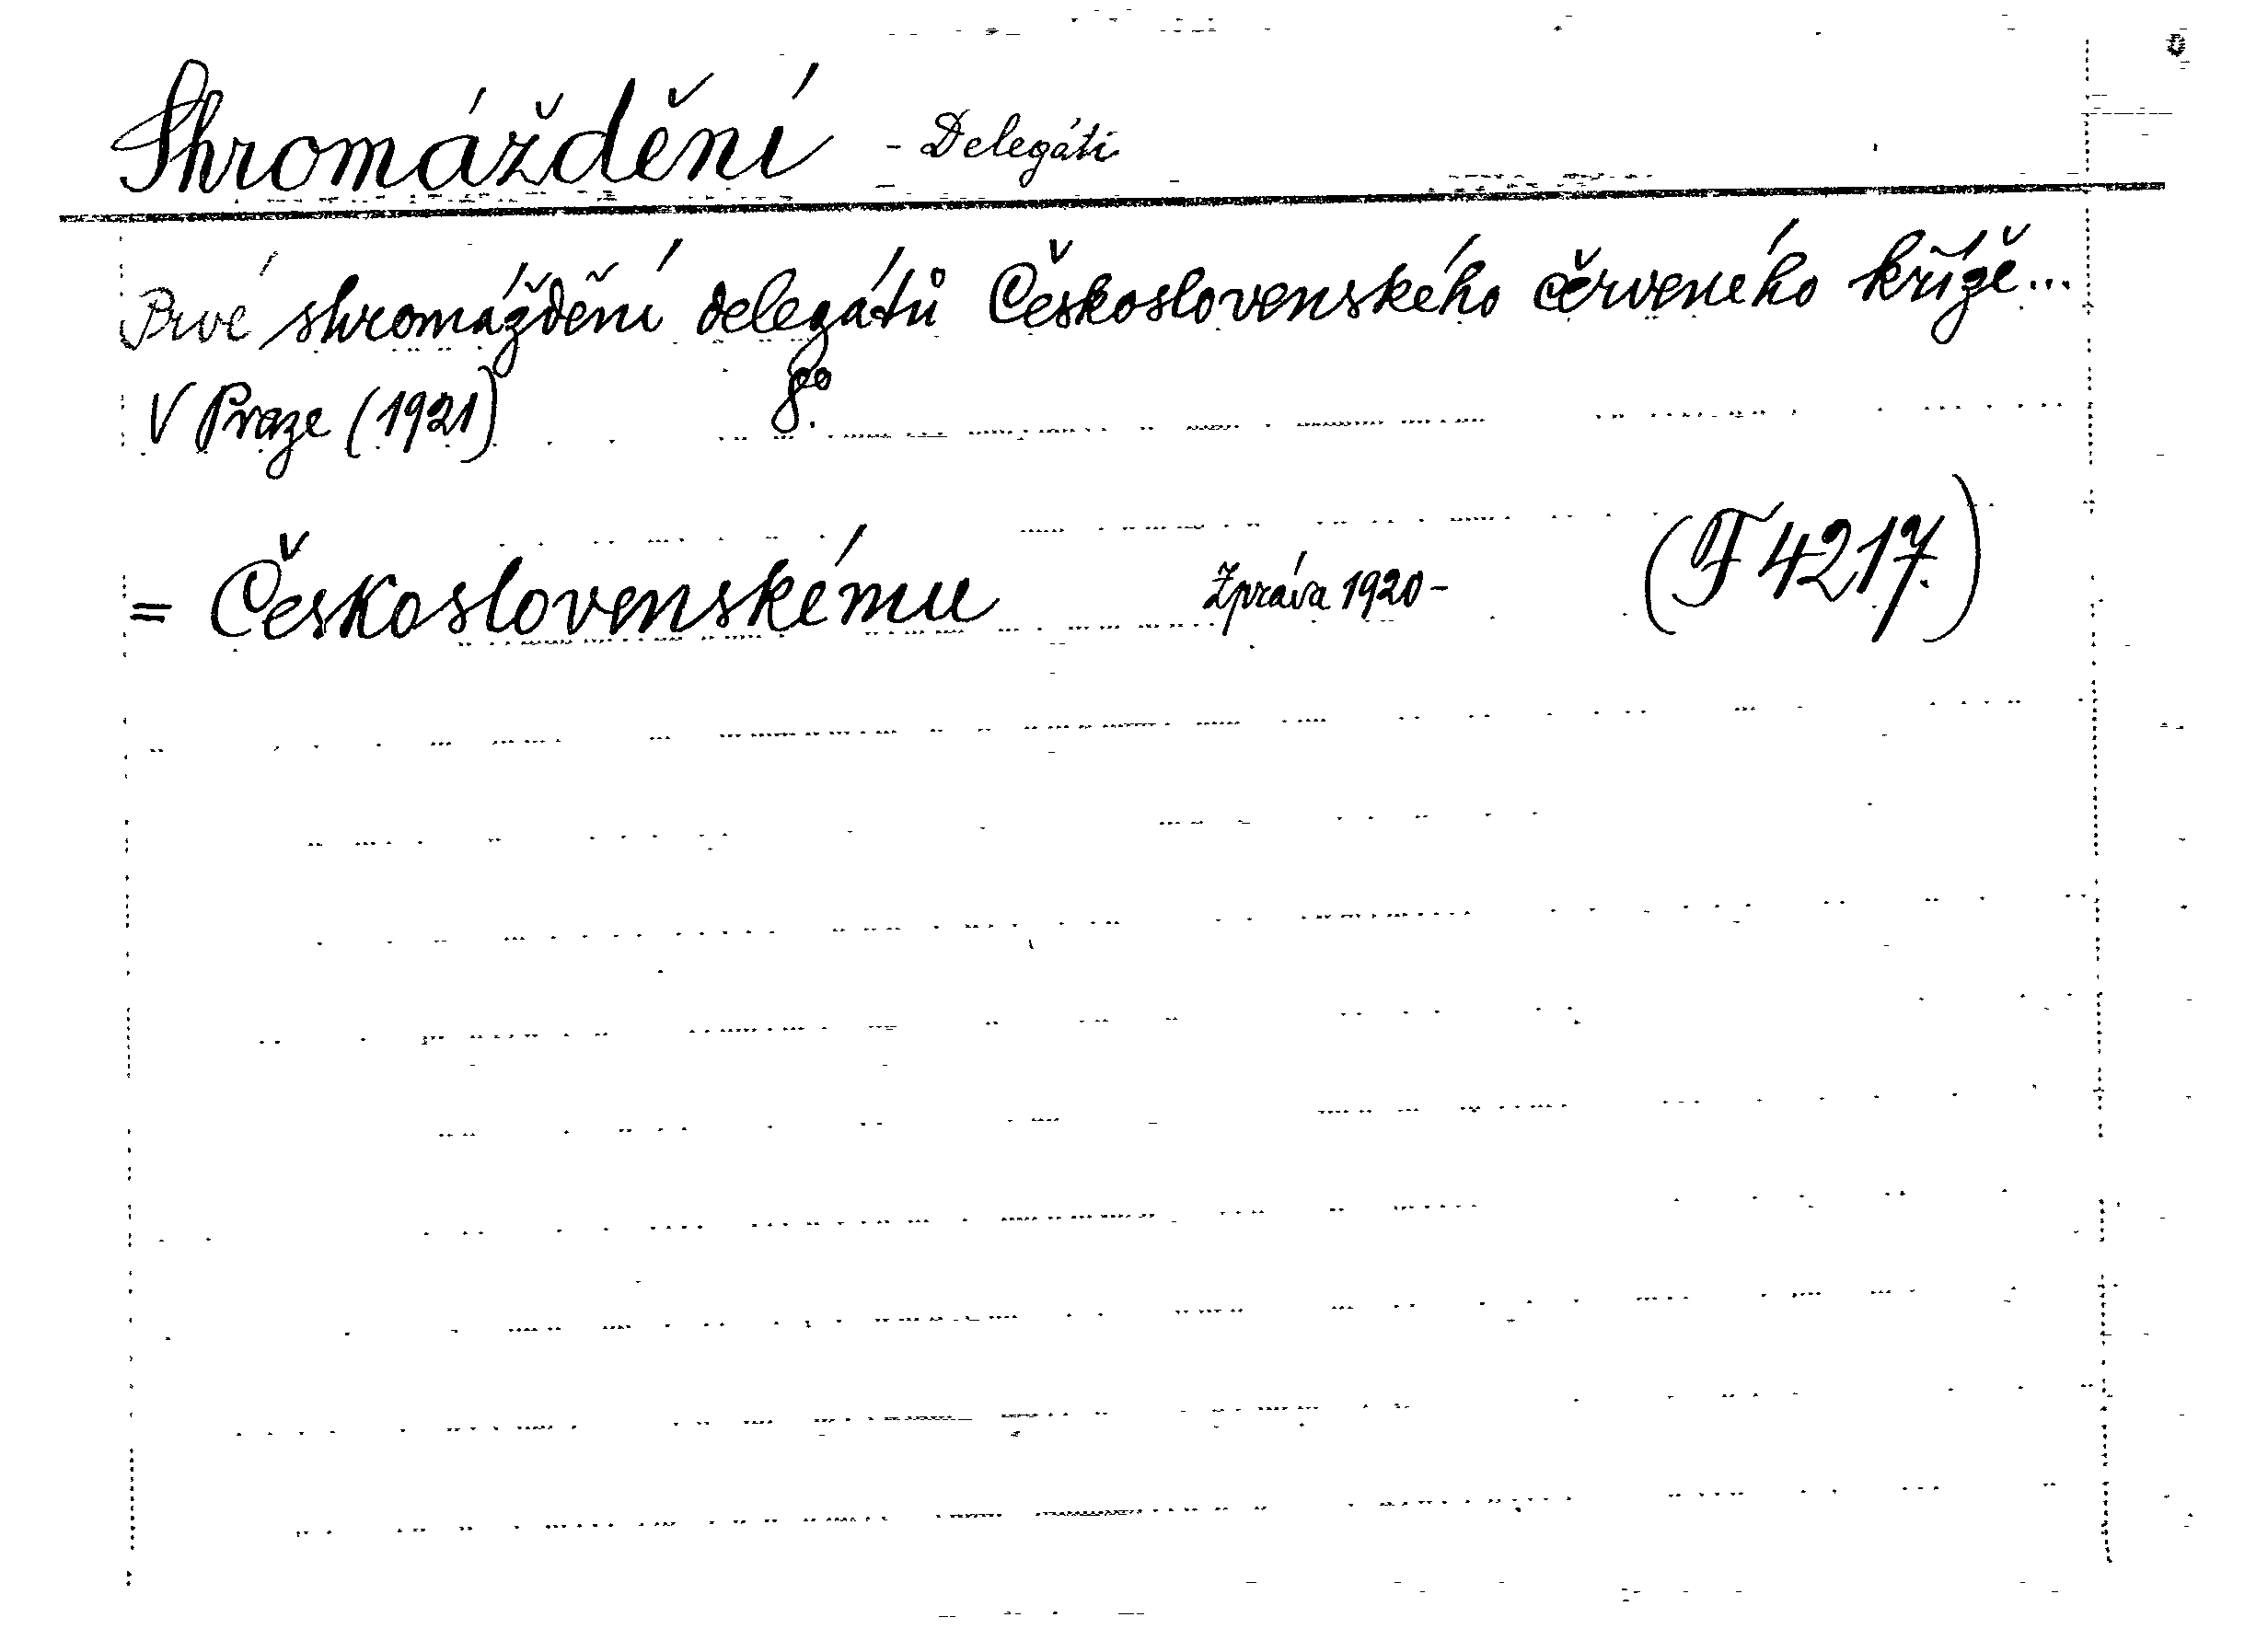 Shromáždění - Delegáti
Prvé shromáždění delegátů Československého červeného kříže...
V Praze (1921) 8°.
= Československému Zpráva 1920- (F 4217.)